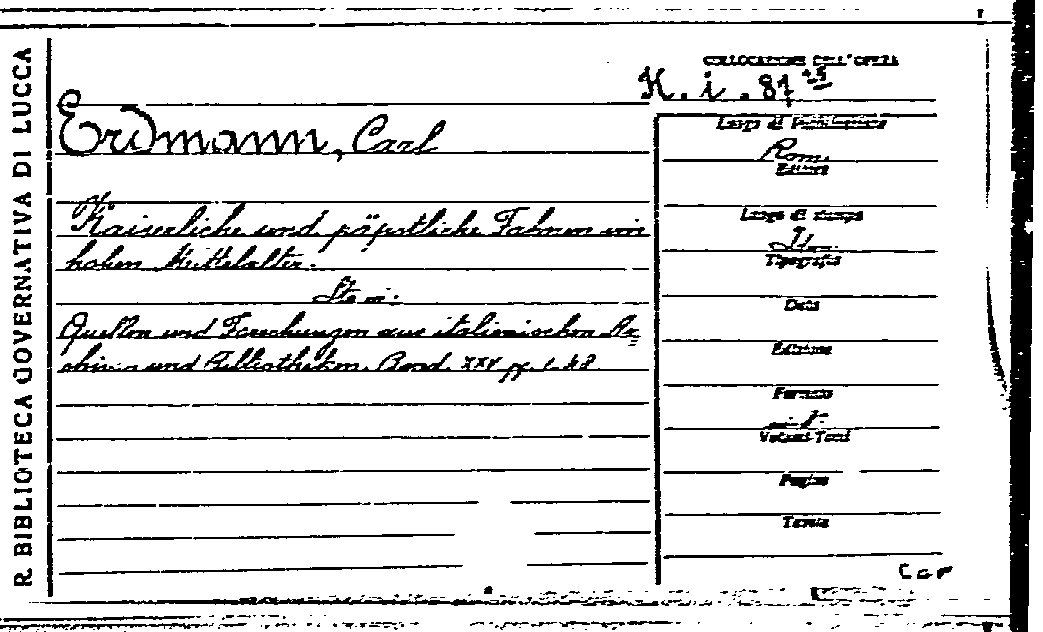 R. BIBLIOTECA GOVERNATIVA DI LUCCA
COLLOCAZIONE DELL'OPERA
H. i. 87
Erdmann, Carl
Kaiserliche und päpstliche Fahnen im
hohen Mittelalter.
Quellen und Forschungen aus italienischen Ar=
chiven und Bibliotheken. Band. XXV pp. 1-48
Luogo di Pubblicazione
Rom.
Editore
Luogo di stampa
Tipografia
Data
Edizione
Formato
in-8°
Volumi-Tomi
Pagine
Tavole